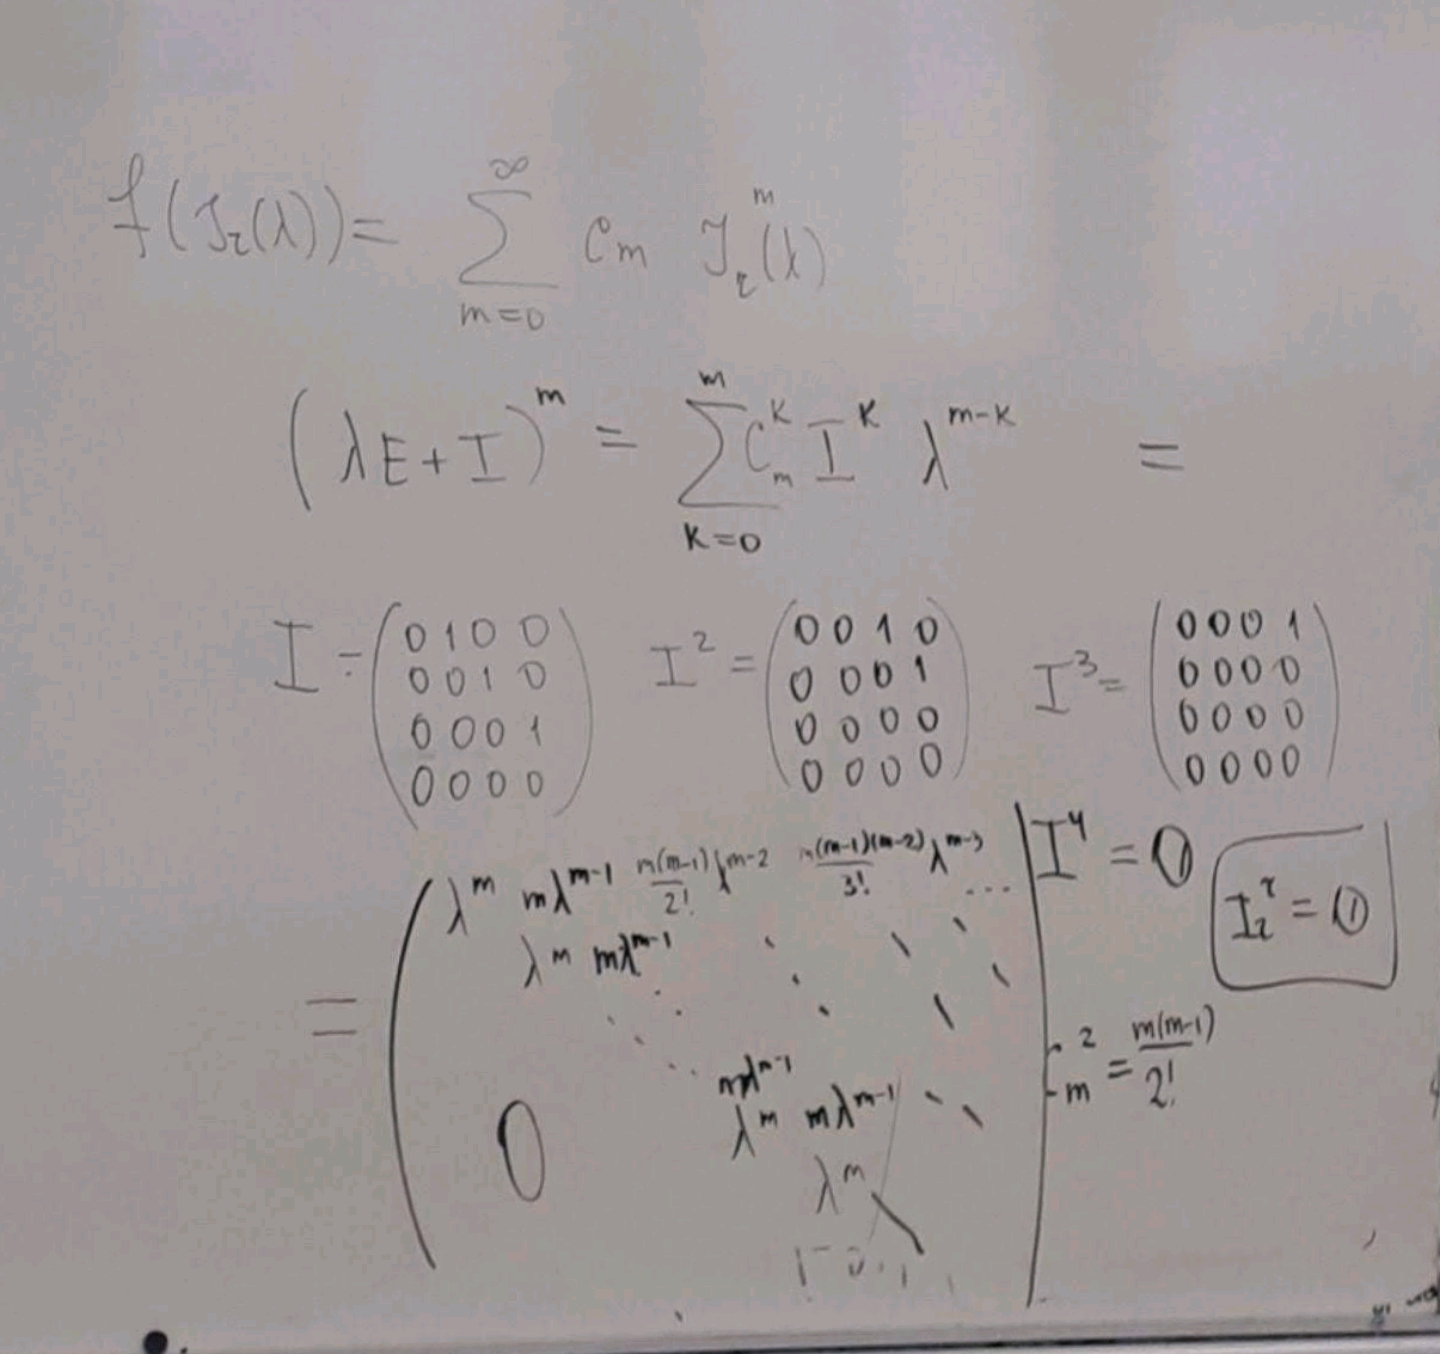 f(J_r(λ)) = ∑_{m=0}^{∞} c_m J_r^m(λ)
(λE + I)^m = ∑_{k=0}^{m} C_m^k I^k λ^{m-k} =
I = (0 1 0 0; 0 0 1 0; 0 0 0 1; 0 0 0 0) I^2 = (0 0 1 0; 0 0 0 1; 0 0 0 0; 0 0 0 0) I^3 = (0 0 0 1; 0 0 0 0; 0 0 0 0; 0 0 0 0)
I^4 = 0 I_r^r = 0
= ( λ^m mλ^{m-1} m(m-1)/2! λ^{m-2} m(m-1)(m-2)/3! λ^{m-3} ...
λ^m mλ^{m-1}
mλ^{m-1}
0 λ^m mλ^{m-1}
λ^m )
C_m^2 = m(m-1)/2!